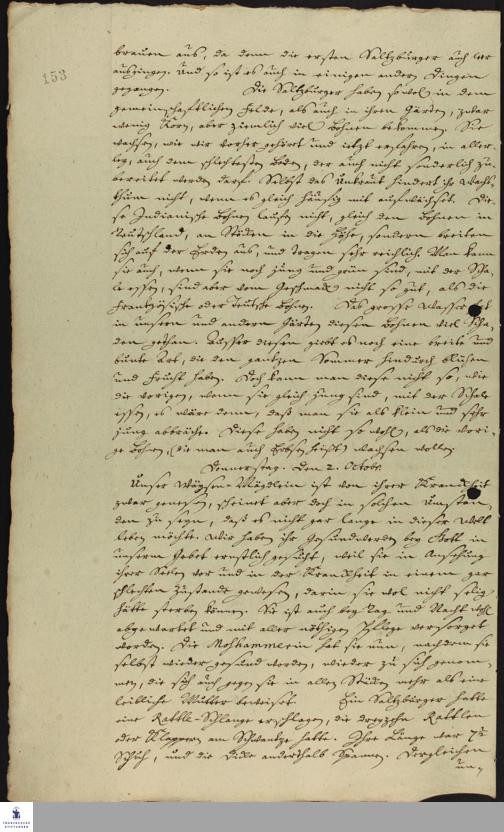 153
brauen aus, da denn die ersten Saltzburger auch leer
ausgingen. Und so ist es auch in einigen andern Dingen
gegangen. Die Saltzburger haben so wol in dem
gemeinschafftlichen Felde, als auch in ihren Gärten, zwar
wenig Korn, aber ziemlich viel Bohnen bekommen. Sie
wachsen, wie wir vorher gehört und ietzt erfahren, in aller-
ley, auch dem schlechtesten Boden, der auch nicht sonderlich zu-
bereitet werden darf. Selbst das Unkraut hindert ihr Wachs-
thum nicht, wenn es gleich häufig mit aufwächset. Die-
se Indianische Bohnen lauffen nicht, gleich den Bohnen in
Teutschland, an Stäben in die Höhe, sondern breiten
sich auf der Erden aus, und tragen sehr reichlich. Man kann
sie auch, wenn sie noch jung und grün sind, mit der Scha-
le essen, sind aber vom Geschmack nicht so gut, als die
Frantzösische oder Teutsche Bohnen. Das grosse Wasser hat
in unsern und andern Gärten diesen Bohnen viel Scha-
den gethan. Ausser diesen giebt es noch eine breite und
bunte Art, die den gantzen Sommer hindurch blühen
und Frucht haben. Doch kann man diese nicht so, wie
die vorigen, wenn sie gleich jung sind, mit der Schale
essen, es wäre denn, daß man sie als klein und sehr
jung abbräche. Diese haben nicht so wohl, als die vori-
ge Bohnen, (die man auch Erbsen heißt) wachsen wollen.
Donnerstag. Den 2. Octobr.
Unser Waysen-Mägdlein ist von ihrer Kranckheit
zwar genesen, scheinet aber doch in solchen Umstän-
den zu seyn, daß es nicht gar lange in dieser Welt
leben möchte. Wir haben ihr Gesundwerden bey Gott in
unserm Gebet ernstlich gesucht, weil sie in Ansehung
ihrer Seelen vor und in der Kranckheit in einem gar
schlechten Zustande gewesen, darin sie wol nicht selig
hätte sterben können. Sie ist auch bey Tag und Nacht wohl
abgewartet und mit aller nöthigen Pflege versorget
worden. Die Helfenstein hat sie nun, nachdem sie
selbst wieder gesund worden, wieder zu sich genom-
men, die sich auch gegen sie in allen Stücken mehr als eine
leibliche Mutter beweiset. Ein Saltzburger hatte
eine Rattle-Schlange erschlagen, die dreyzehn Rattlen
oder Klappern am Schwantze hatte. Ihre Länge war 7½
Schuh, und die Dicke anderthalb Spannen. Dergleichen
un-